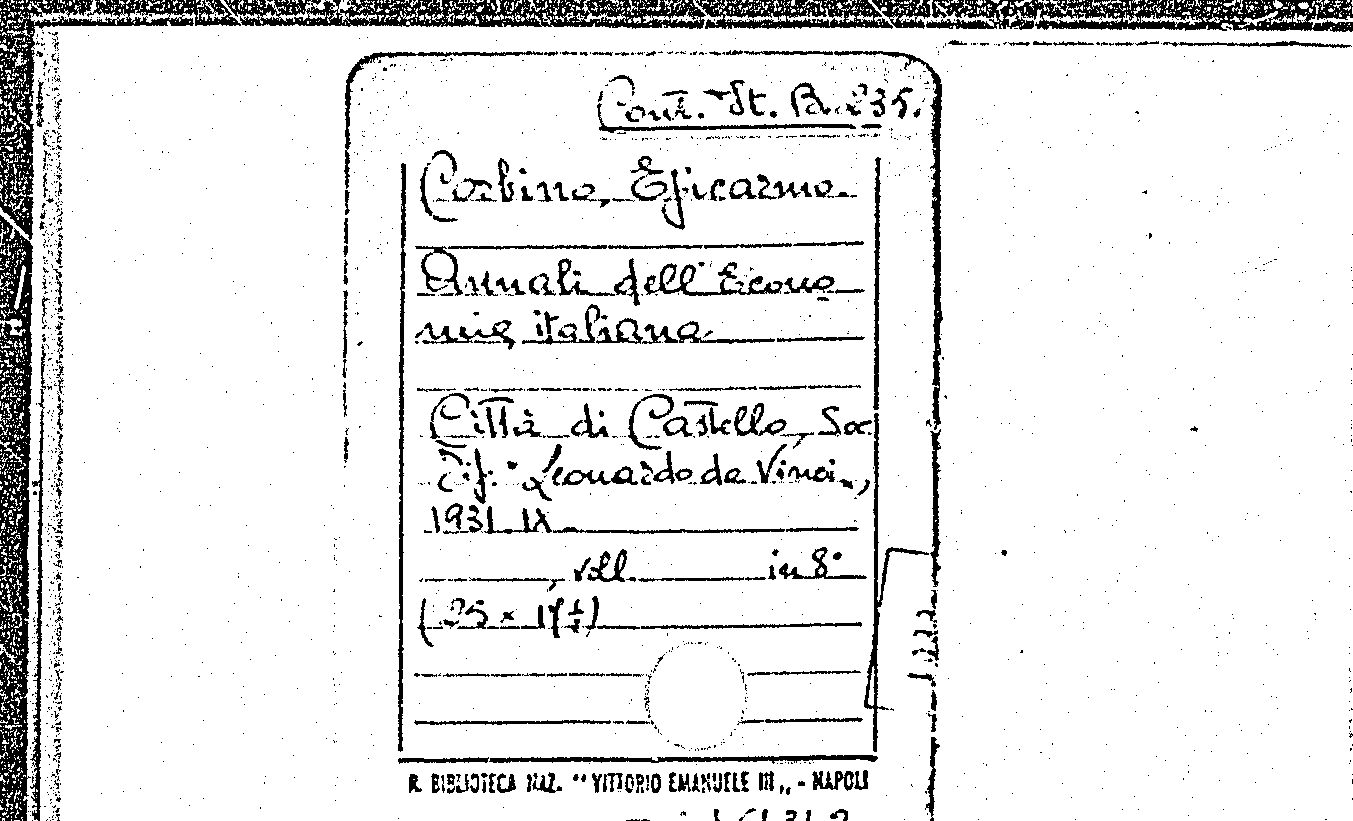 Cont. St. B. 235.
Corbino, Epicarmo.
Annali dell'Econo
mia italiana
Città di Castello, Soc.
Tip. "Leonardo da Vinci",
1931 IX
, voll. in 8°
(25 × 17 ½)
R. BIBLIOTECA NAZ. "VITTORIO EMANUELE III" - NAPOLI